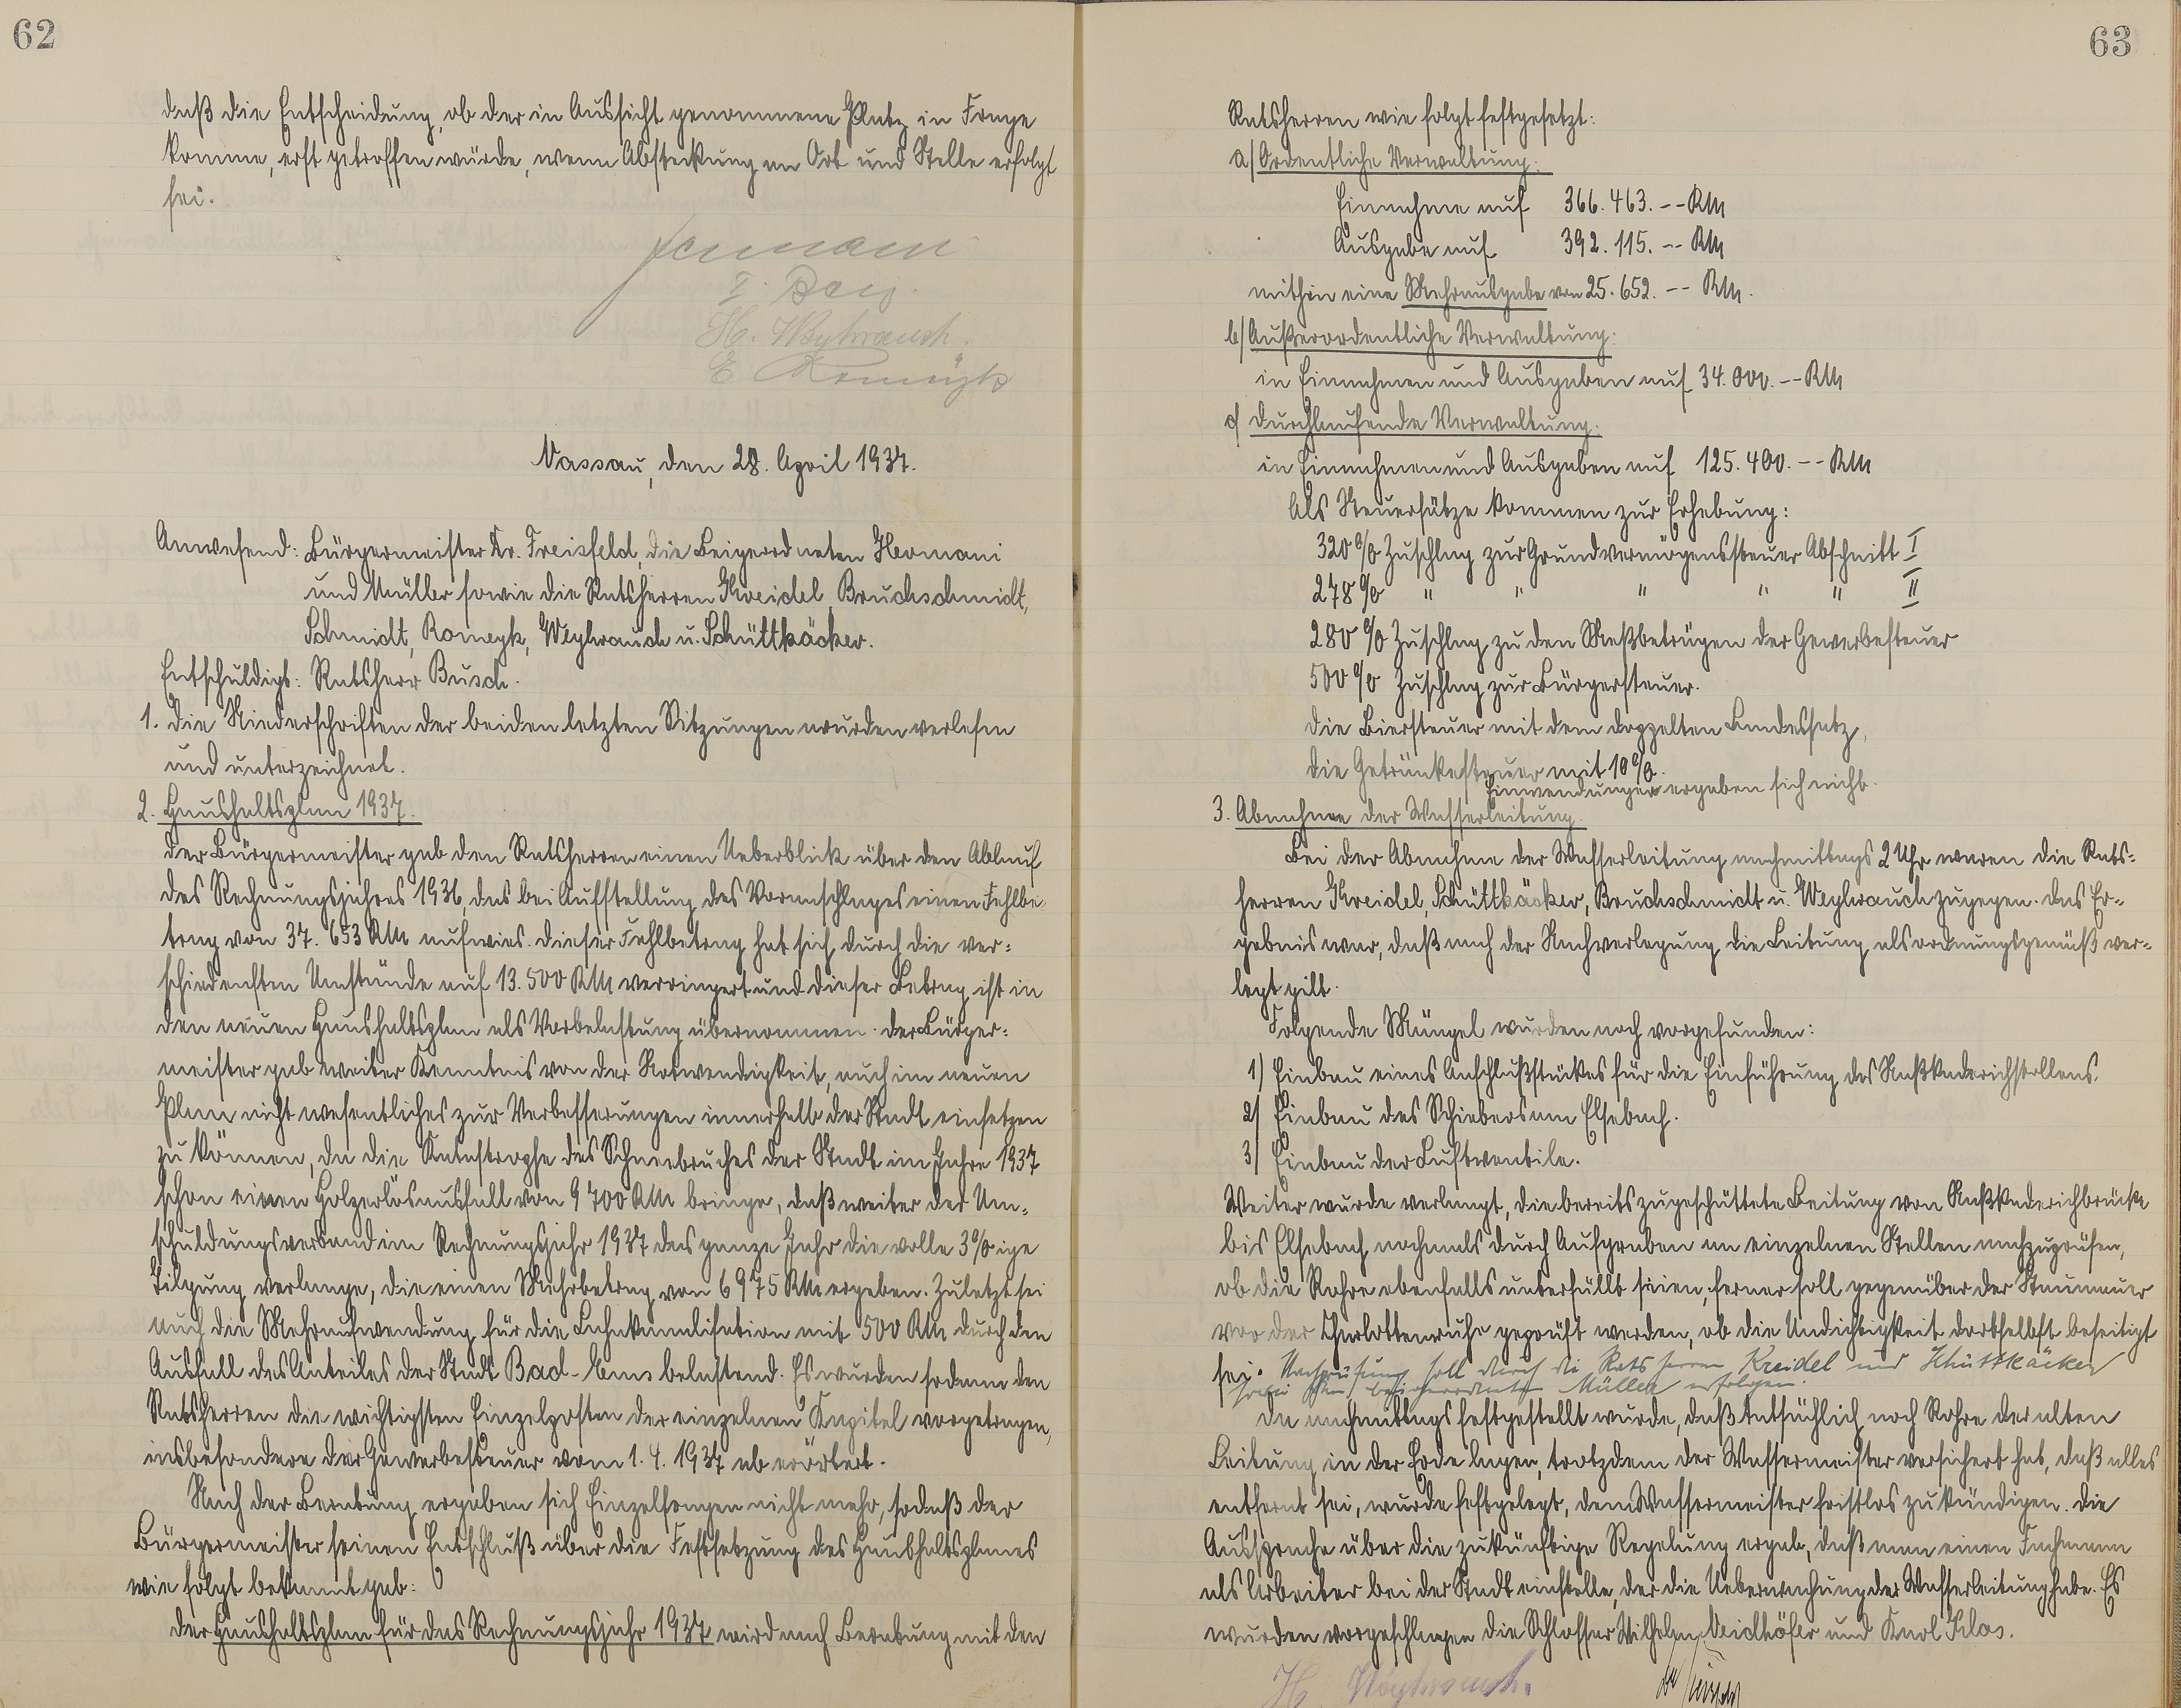 62
daß die Entscheidung, ob der in Aussicht genommene Platz in Frage
komme, erst getroffen würde, wenn Absteckung an Ort und Stelle erfolgt
sei.
Hermani
H. Weyhrauch.
E Romeyk
Nassau, den 28. April 1937.
Anwesend: Bürgermeister Dr. Freisfeld, die Beigeordneten Hermani
und Müller sowie die Ratsherren Kreidel, Bruchschmidt,
Schmidt, Romeyk, Weyhrauch u. Schüttkäcker.
Entschuldigt: Ratsherr Busch.
1. Die Niederschriften der beiden letzten Sitzungen wurden verlesen
und unterzeichnet.
2. Haushaltsplan 1937.
Der Bürgermeister gab den Ratsherren einen Ueberblick über den Ablauf
des Rechnungsjahres 1936, das bei Aufstellung des Voranschlages einen Fehlbe-
trag von 37.653 RM aufwies. Dieser Fehlbetrag hat sich durch die ver-
schiedensten Umstände auf 13.500 RM verringert und dieser Betrag ist in
den neuen Haushaltsplan als Vorbelastung übernommen. Der Bürger-
meister gab weiter Kenntnis von der Notwendigkeit, auch im neuen
Plan nicht wesentliches zur Verbesserungen innerhalb der Stadt einsetzen
zu können, da die Katastrophe des Schneebruches der Stadt im Jahre 1937
schon einen Holzerlösausfall von 9700 RM bringe, daß weiter der Um-
schuldungsverband im Rechnungsjahr 1937 das ganze Jahr die volle 3%ige
Tilgung verlange, die einen Mehrbetrag von 6975 RM ergeben. Zuletzt sei
auch die Mehraufwendung für die Lahnkanalisation mit 500 RM durch den
Ausfall des Anteiles der Stadt Bad-Ems belastend. Es wurden sodann den
Ratsherren die wichtigsten Einzelposten der einzelnen Kapitel vorgetragen,
insbesondere der Gewerbesteuer vom 1.4.1937 ab erörtert.
Nach der Beratung ergaben sich Einzelfragen nicht mehr, sodaß der
Bürgermeister seinen Entschluß über die Festsetzung des Haushaltsplanes
wie folgt bekannt gab:
Der Haushaltsplan für das Rechnungsjahr 1937 wird nach Beratung mit den
63
Ratsherren wie folgt festgesetzt:
a/ Ordentliche Verwaltung:
Einnahme auf 366.463.-- RM
Ausgabe auf 392.115.-- RM
mithin eine Mehrausgabe von 25.652.-- RM.
b/ Außerordentliche Verwaltung:
in Einnahmen und Ausgaben auf 34.000.-- RM
c/ Durchlaufende Verwaltung.
in Einnahmen und Ausgaben auf 125.400.-- RM
Als Steuersätze kommen zur Erhebung:
320 % Zuschlag zur Grundvermögenssteuer Abschnitt I
278 % " " " " " II
280 % Zuschlag zu den Meßbeträgen der Gewerbesteuer
500 % Zuschlag zur Bürgersteuer.
die Biersteuer mit dem doppelten Landessatz,
die Getränkesteuer mit 10 %.
Einwendungen ergaben sich nicht.
3. Abnahme der Wasserleitung.
Bei der Abnahme der Wasserleitung nachmittags 2 Uhr waren die Rats-
herren Kreidel, Schüttkäcker, Bruchschmidt u. Weyhrauch zugegen. Das Er-
gebnis war, daß nach der Nachverlegung die Leitung als ordnungsgemäß ver-
legt gilt.
Folgende Mängel wurden noch vorgefunden:
1) Einbau eines Anschlußstückes für die Einführung des Naßkaderichstollens.
2) Einbau des Schiebers am Elsebach.
3) Einbau der Luftventile.
Weiter wurde verlangt, die bereits zugeschüttete Leitung von Naßkaderichbrücke
bis Elsebach nochmals durch Aufgraben an einzelnen Stellen nachzuprüfen,
ob die Rohre ebenfalls unterfüllt seien, ferner soll gegenüber der Staumauer
vor der Charlottenruhe geprüft werden, ob die Undichtigkeit dortselbst beseitigt
sei. Nachprüfung soll durch die Ratsherren Kreidel und Schüttkäcker
sowie Beigeordneten Müller erfolgen.
Da nachmittags festgestellt wurde, daß tatsächlich noch Rohre der alten
Leitung in der Erde lagen, trotzdem der Wassermeister versichert hat, daß alles
entfernt sei, wurde festgelegt, dem Wassermeister fristlos zu kündigen. Die
Aussprache über die zukünftige Regelung ergab, daß man einen Fachmann
als Arbeiter bei der Stadt einstelle, der die Ueberwachung der Wasserleitung habe. Es
wurden vorgeschlagen die Schlosser Wilhelm Neidhöfer und Karl Klos.
H. Weyhrauch.